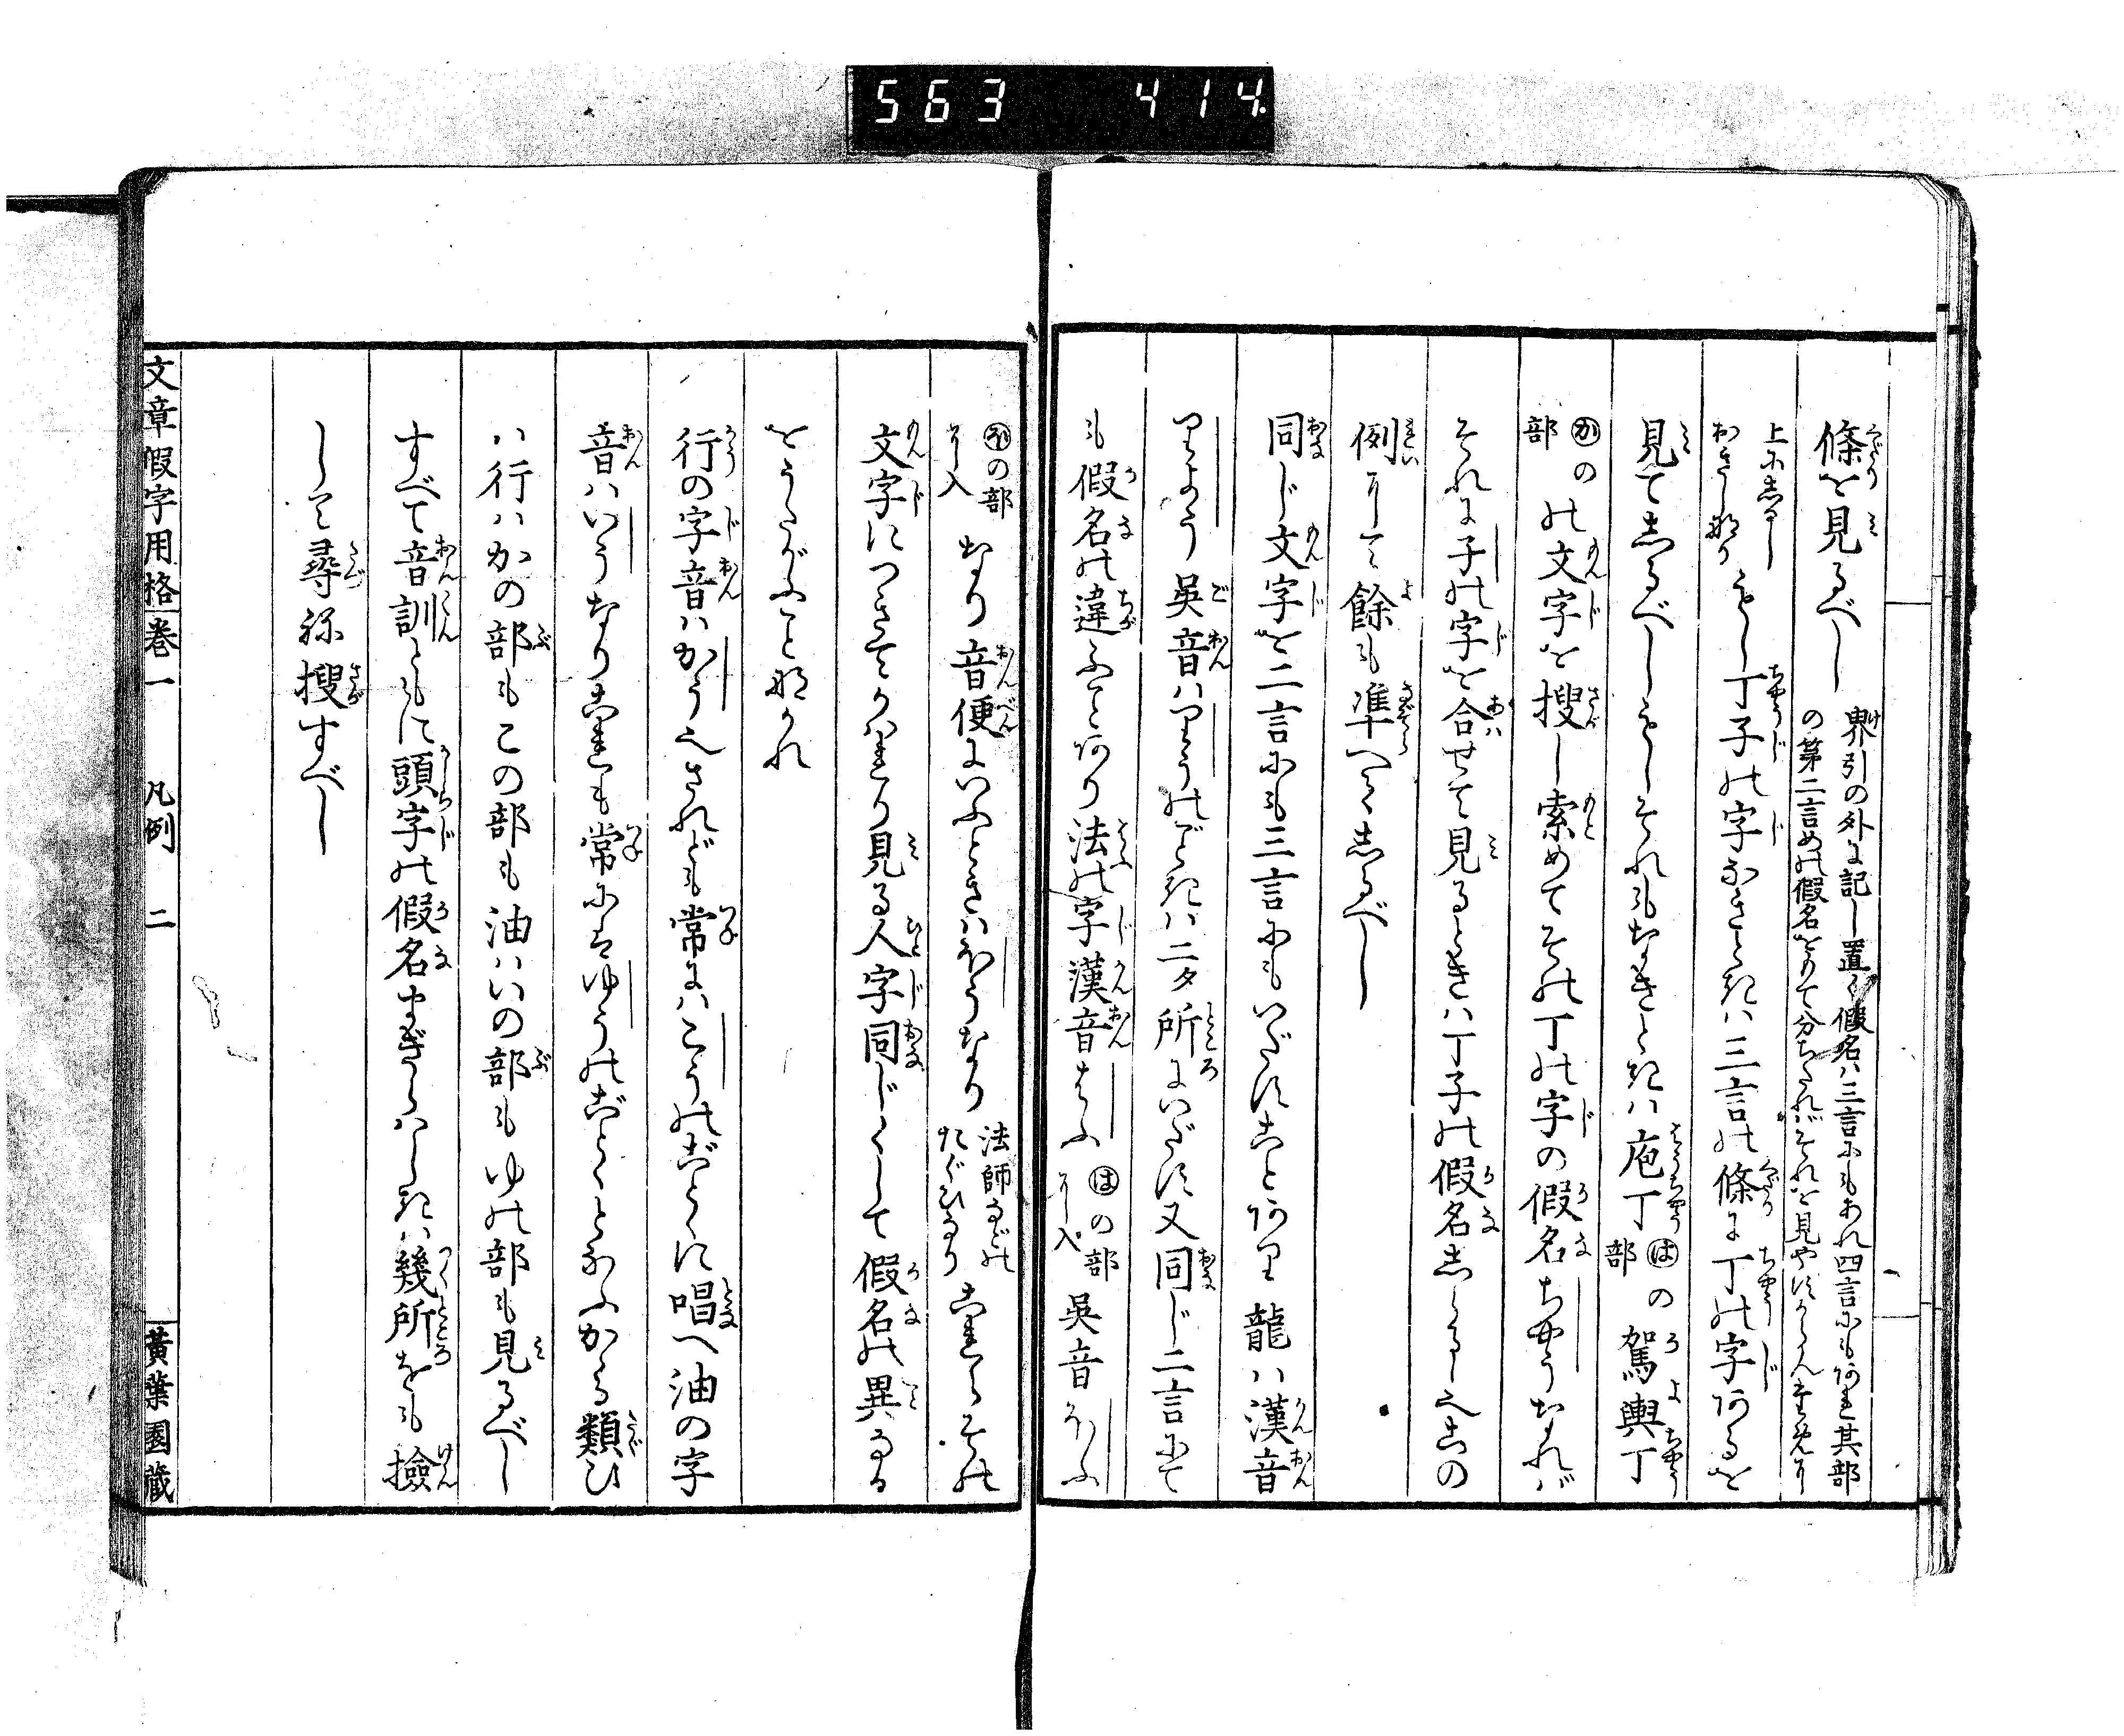 563 414
條を見るべし 界引の外に記し置く假名ハ三言にもあれ四言にもあれ其部
の第二言めの假名をもて分ちたれバそれを見やすからん
上にしるし
おきし如く もし丁子の字なきときハ三言の條に丁の字あるを
見てしるべしもしそれもなきときハ庖丁はの部駕輿丁
かの部の文字を搜し索めてその丁の字の假名ちやうなれバ
それに子の字を合せて見るときハ丁子の假名しらるゝ也この
例にして餘も準へてしるべし
同じ文字を二言にも三言にもいだすことあり龍ハ漢音
りよう吳音ハりうのごときハ二タ所にいだす又同じ二言にて
も假名の違ふことあり法の字漢音はふはの部に入吳音ほふ
ほの部に入なり音便にいふときハほうなり法師などのたぐひなりこれらその
文字につきてかハれり見る人字同じくして假名の異なる
をうたがふこと勿れ
行の字音ハかう也されども常にハこうのごとくに唱へ油の字
音ハいうなりこれも常にはゆうのごとくとなふかゝる類ひ
ハ行ハかの部もこの部も油ハいの部もゆの部も見るべし
すべて音訓ともに頭字の假名まぎらハしきハ幾所をも撿
して尋ね搜すべし
文章假字用格 卷一 凡例 二 黃葉園藏